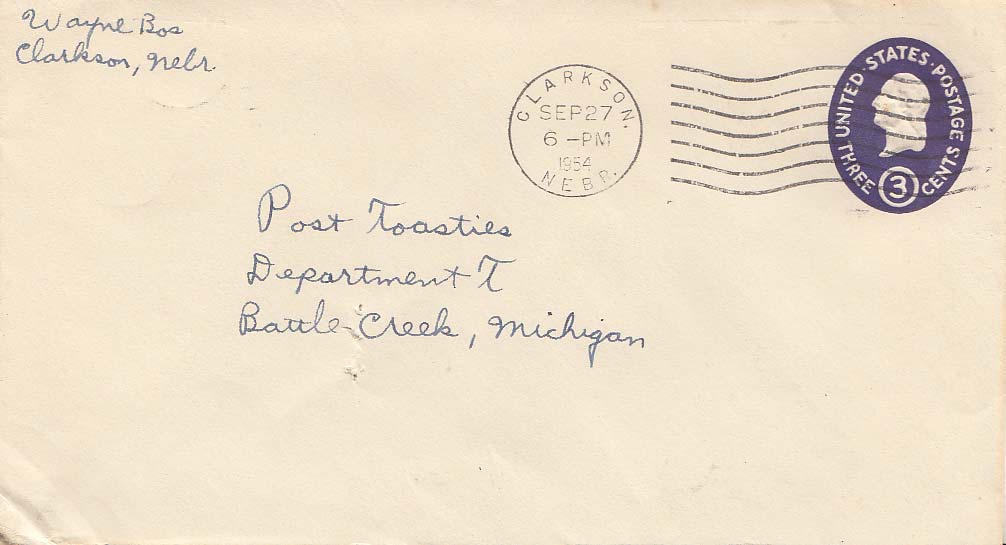 Wayne Bos
Clarkson, Nebr.
CLARKSON.
SEP 27
6 -PM
1954
NEBR.
UNITED · STATES · POSTAGE
THREE 3 CENTS
Post Toasties
Department T
Battle Creek, Michigan